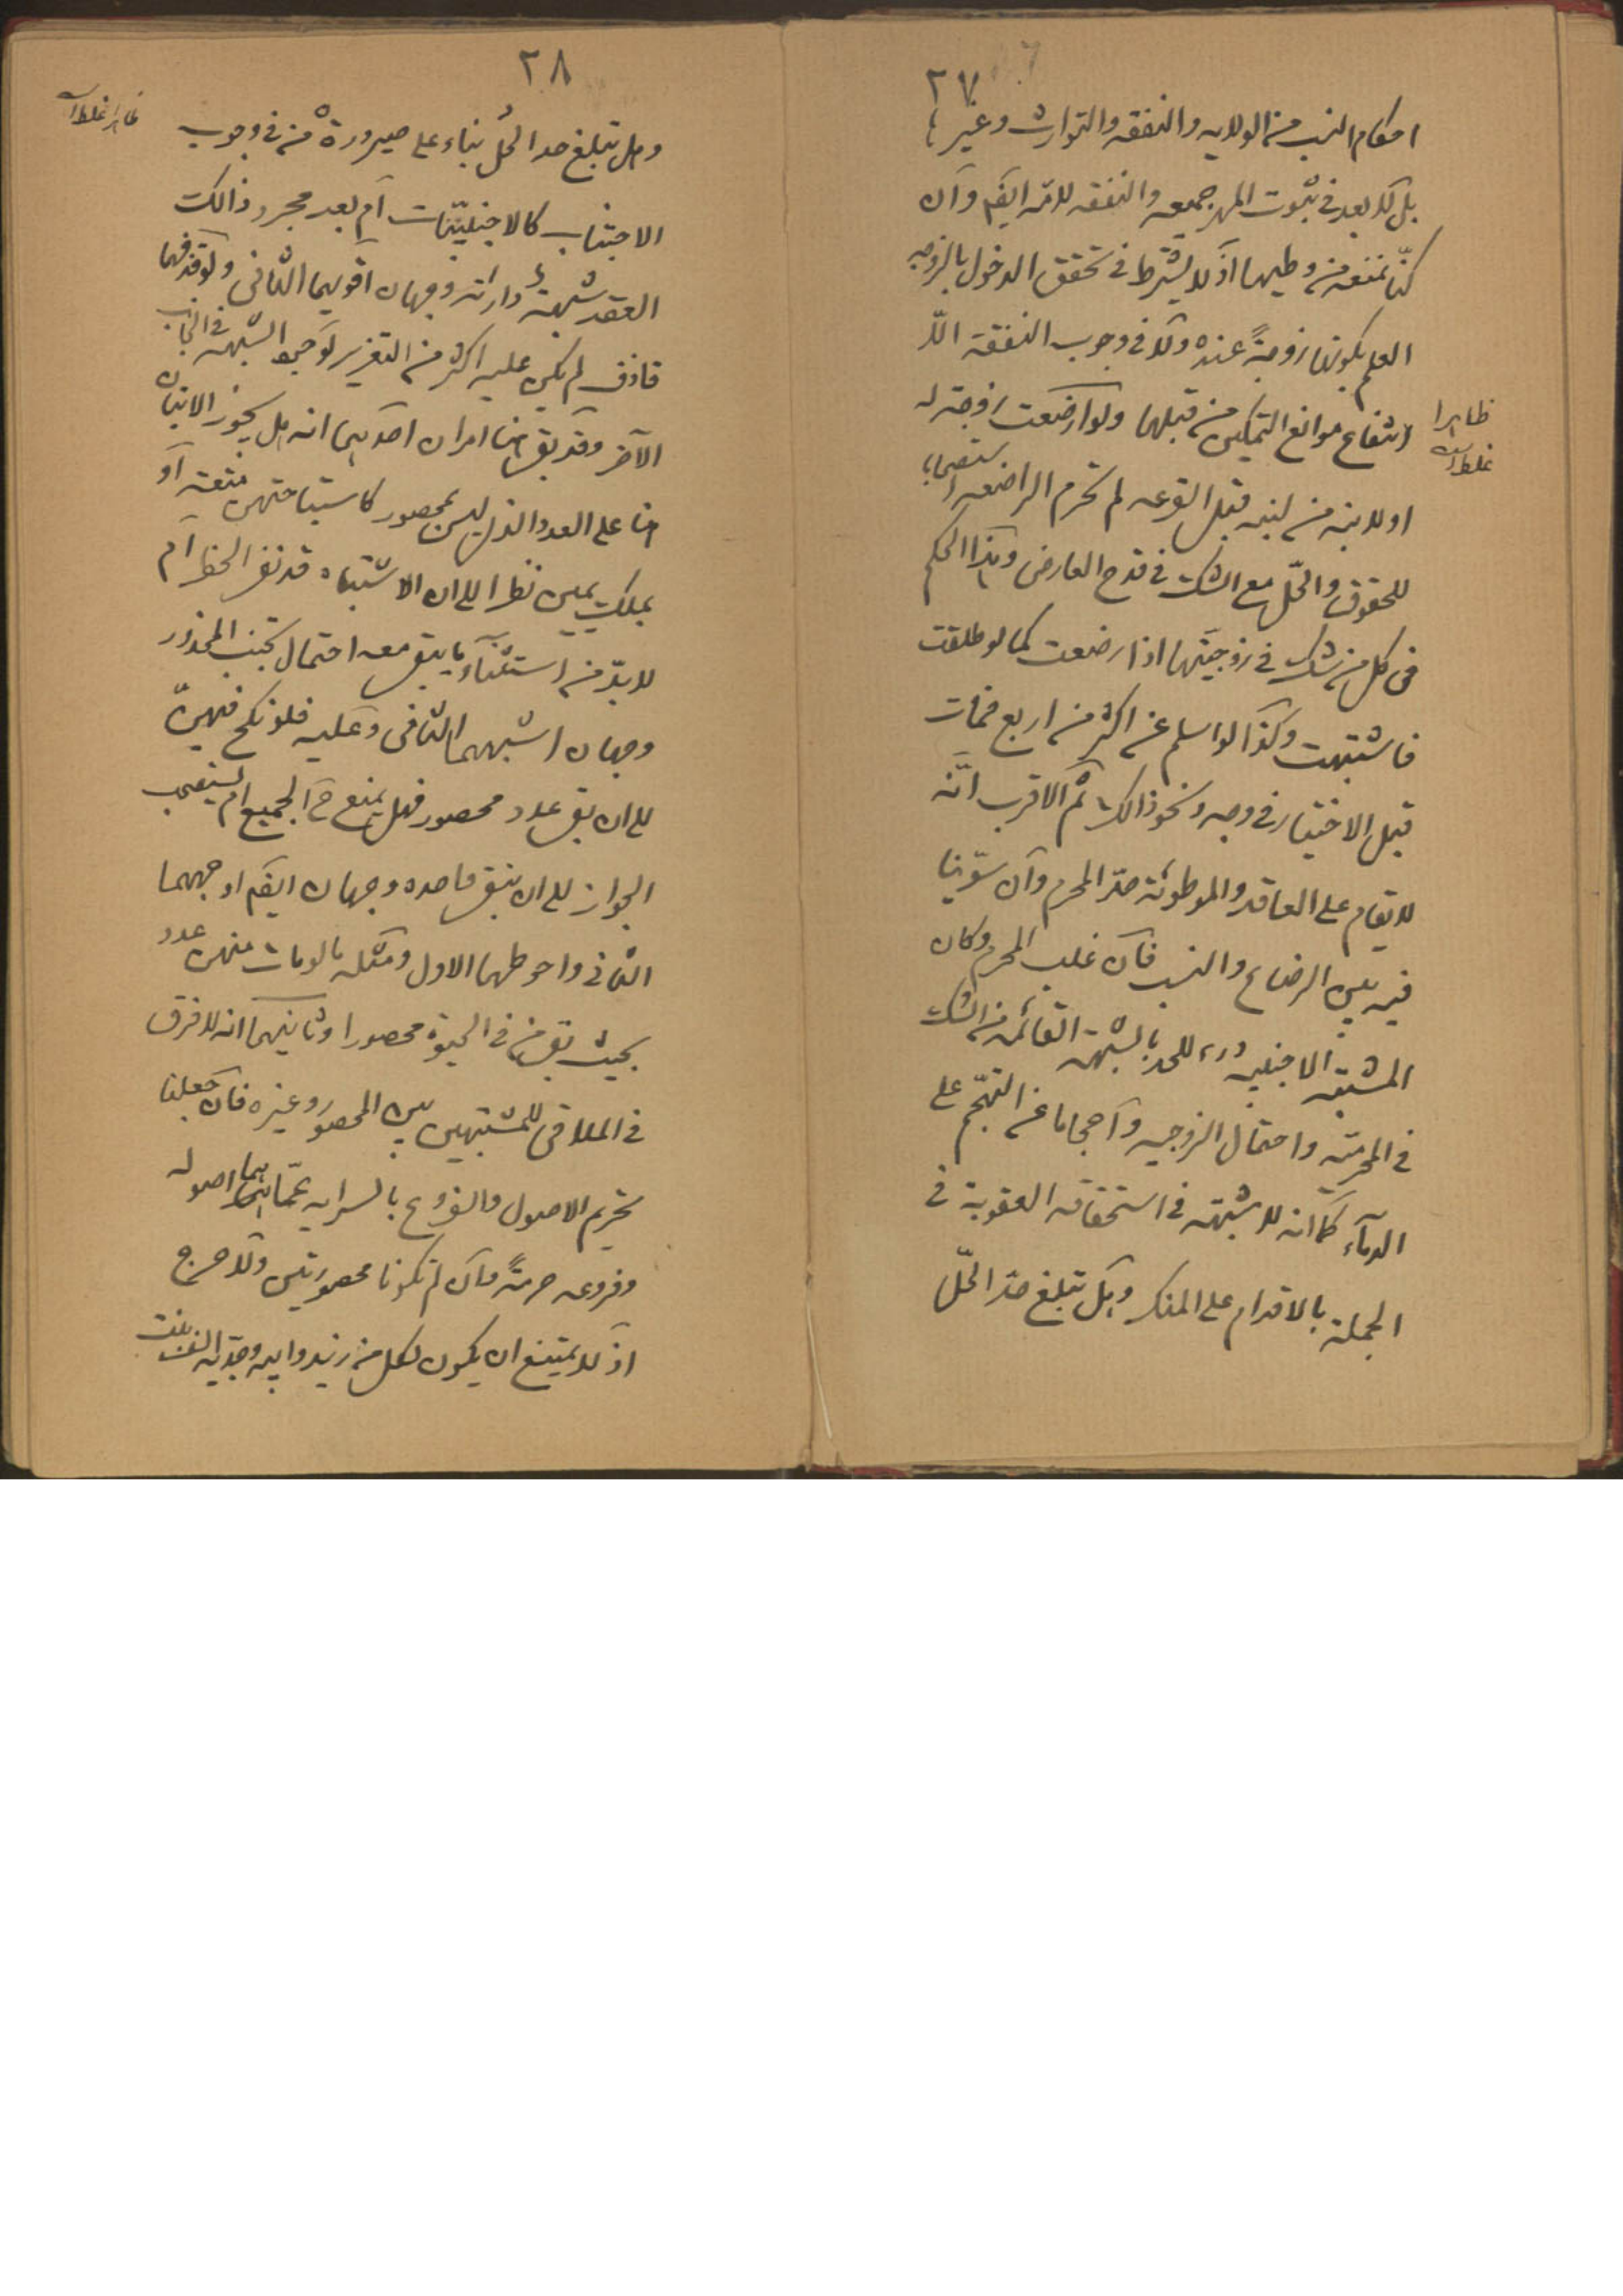 ٢٧
احكام النسب من الولايه والنفقه والتوارث وغيرها
بل لا بعد فى ثبوت المهر جميعه والنفقه للامّه ايضم وان
كنّا نمنعه من وطيها اذ لا يشترط فى تحقق الدخول بالزوجه
العلم بكونها زوجةً عنده ولا فى وجوب النفقة الّا
ارتفاع موانع التمكين من قبلها ولو ارضعت زوجته له
ظاهرا غلط است
او لابنه من لبنه قبل القرعه لم تحرم الراضعه استصحابا
للحقوق والحلّ مع الشك فى قدح العارض وهذا الحكم
فى كل من شك فى زوجيّتها اذا ارضعت كما لو طلقت
فاشتبهت وكذا لو اسلم عن اكثر من اربع
قبل الاختيار فى وجه ونحو ذالك ثم الاقرب انّه
لا يقام على العاقد والموطوئة حدّ المحرم وان سوّينا
فيه بين الرضاع والنسب فان غلب المحرم وكان
المشتبه الاجنبيه درء للحد بالشبهة القائمه من الشك
فى المحرميّة واحتمال الزوجيه واحجاما عن التهجّم على
الدماء كما انه لا شبهة فى استحقاقه العقوبة فى
الجملة بالاقدام على المنكر وهل تبلغ حدّ الحلّ
٢٨
وهل تبلغ حد الحُل بناء على صيرورة من فى وجوب
ظاهرا غلط است
الاجتناب كالاجنبيّات ام بعد مجرد ذالك
العقد شبهةً دارئة وجهان اقويهما الثانى ولو قذفهما
قاذف لم يكن عليه اكثر من التعزير لوجود الشبهه فى الجانب
الآخر وقد بقى هنا امران احديهما انه هل يجوز الاتيان
هنا على العدد الذى ليس بمحصور كاستباحتهن متعة او
بملك يمين نظرا الى ان الاشتباه قد نفى الحظر ام
لا بدّ من استثناء ما يبقى معه احتمال تجنب المحذور
وجهان اشبههما الثانى وعليه فلو نكح منهنّ
الى ان بقى عدد محصور فهل يمنع من الجميع ام يستصحب
الجواز الى ان يبقى واحده وجهان ايضم اوجههما
الثانى واحوطهما الاول ومثله ما لو مات منهن عدد
بحيث بقى من فى الحيوة محصورا وثانيهما انه لا فرق
فى الملاقى للمشتبهين بين المحصور وغيره فان جعلنا
تحريم الاصول والفروع بالسرايه عمّاهما اصوله
وفروعه حرمةً وان لم تكونا محصورتين ولا حرج
اذ لا يمتنع ان يكون لكل من زيد وابيه وجدّيه الف بنت